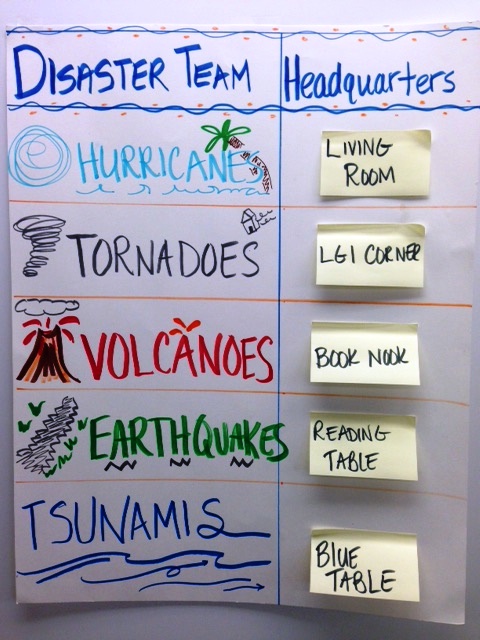 DISASTER TEAM Headquarters
HURRICANES
LIVING
ROOM
TORNADOES
LGI CORNER
VOLCANOES
BOOK NOOK
EARTHQUAKES
READING
TABLE
TSUNAMIS
BLUE
TABLE